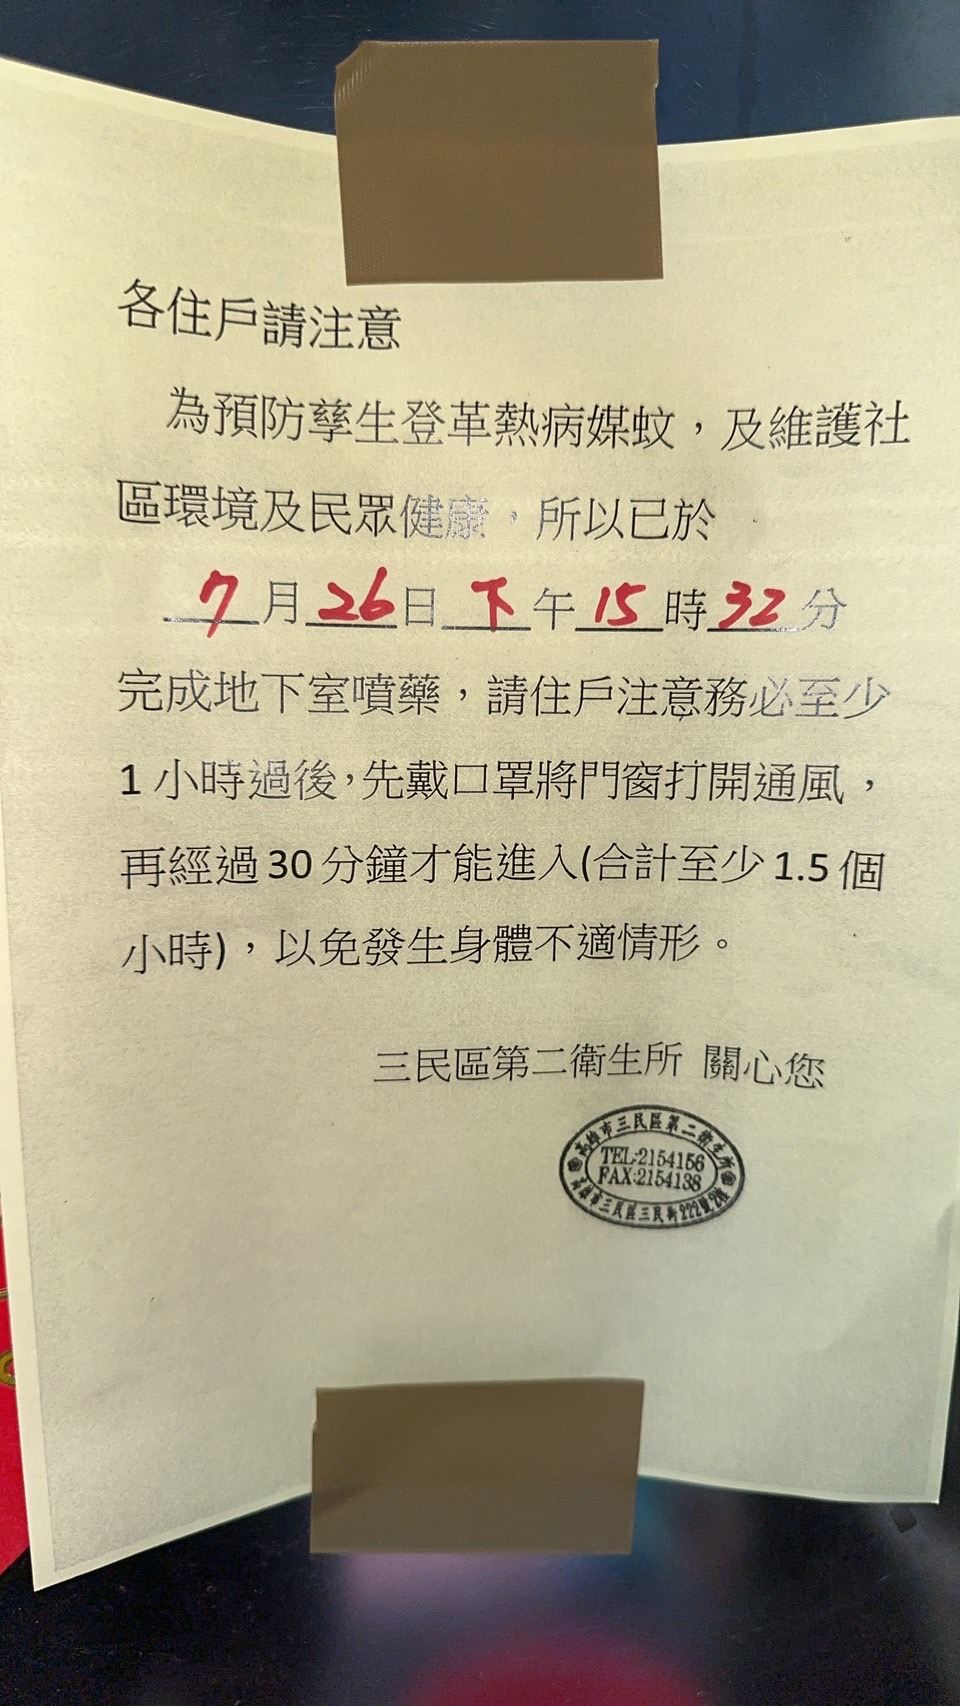 各住戶請注意
為預防孳生登革熱病媒蚊，及維護社
區環境及民眾健康，所以已於
7月26日下午15時32分
完成地下室噴藥，請住戶注意務必至少
1小時過後，先戴口罩將門窗打開通風，
再經過30分鐘才能進入(合計至少1.5個
小時)，以免發生身體不適情形。
三民區第二衛生所 關心您
高雄市三民區第二衛生所
TEL:2154156
FAX:2154138
高雄市三民區三民街222號2樓